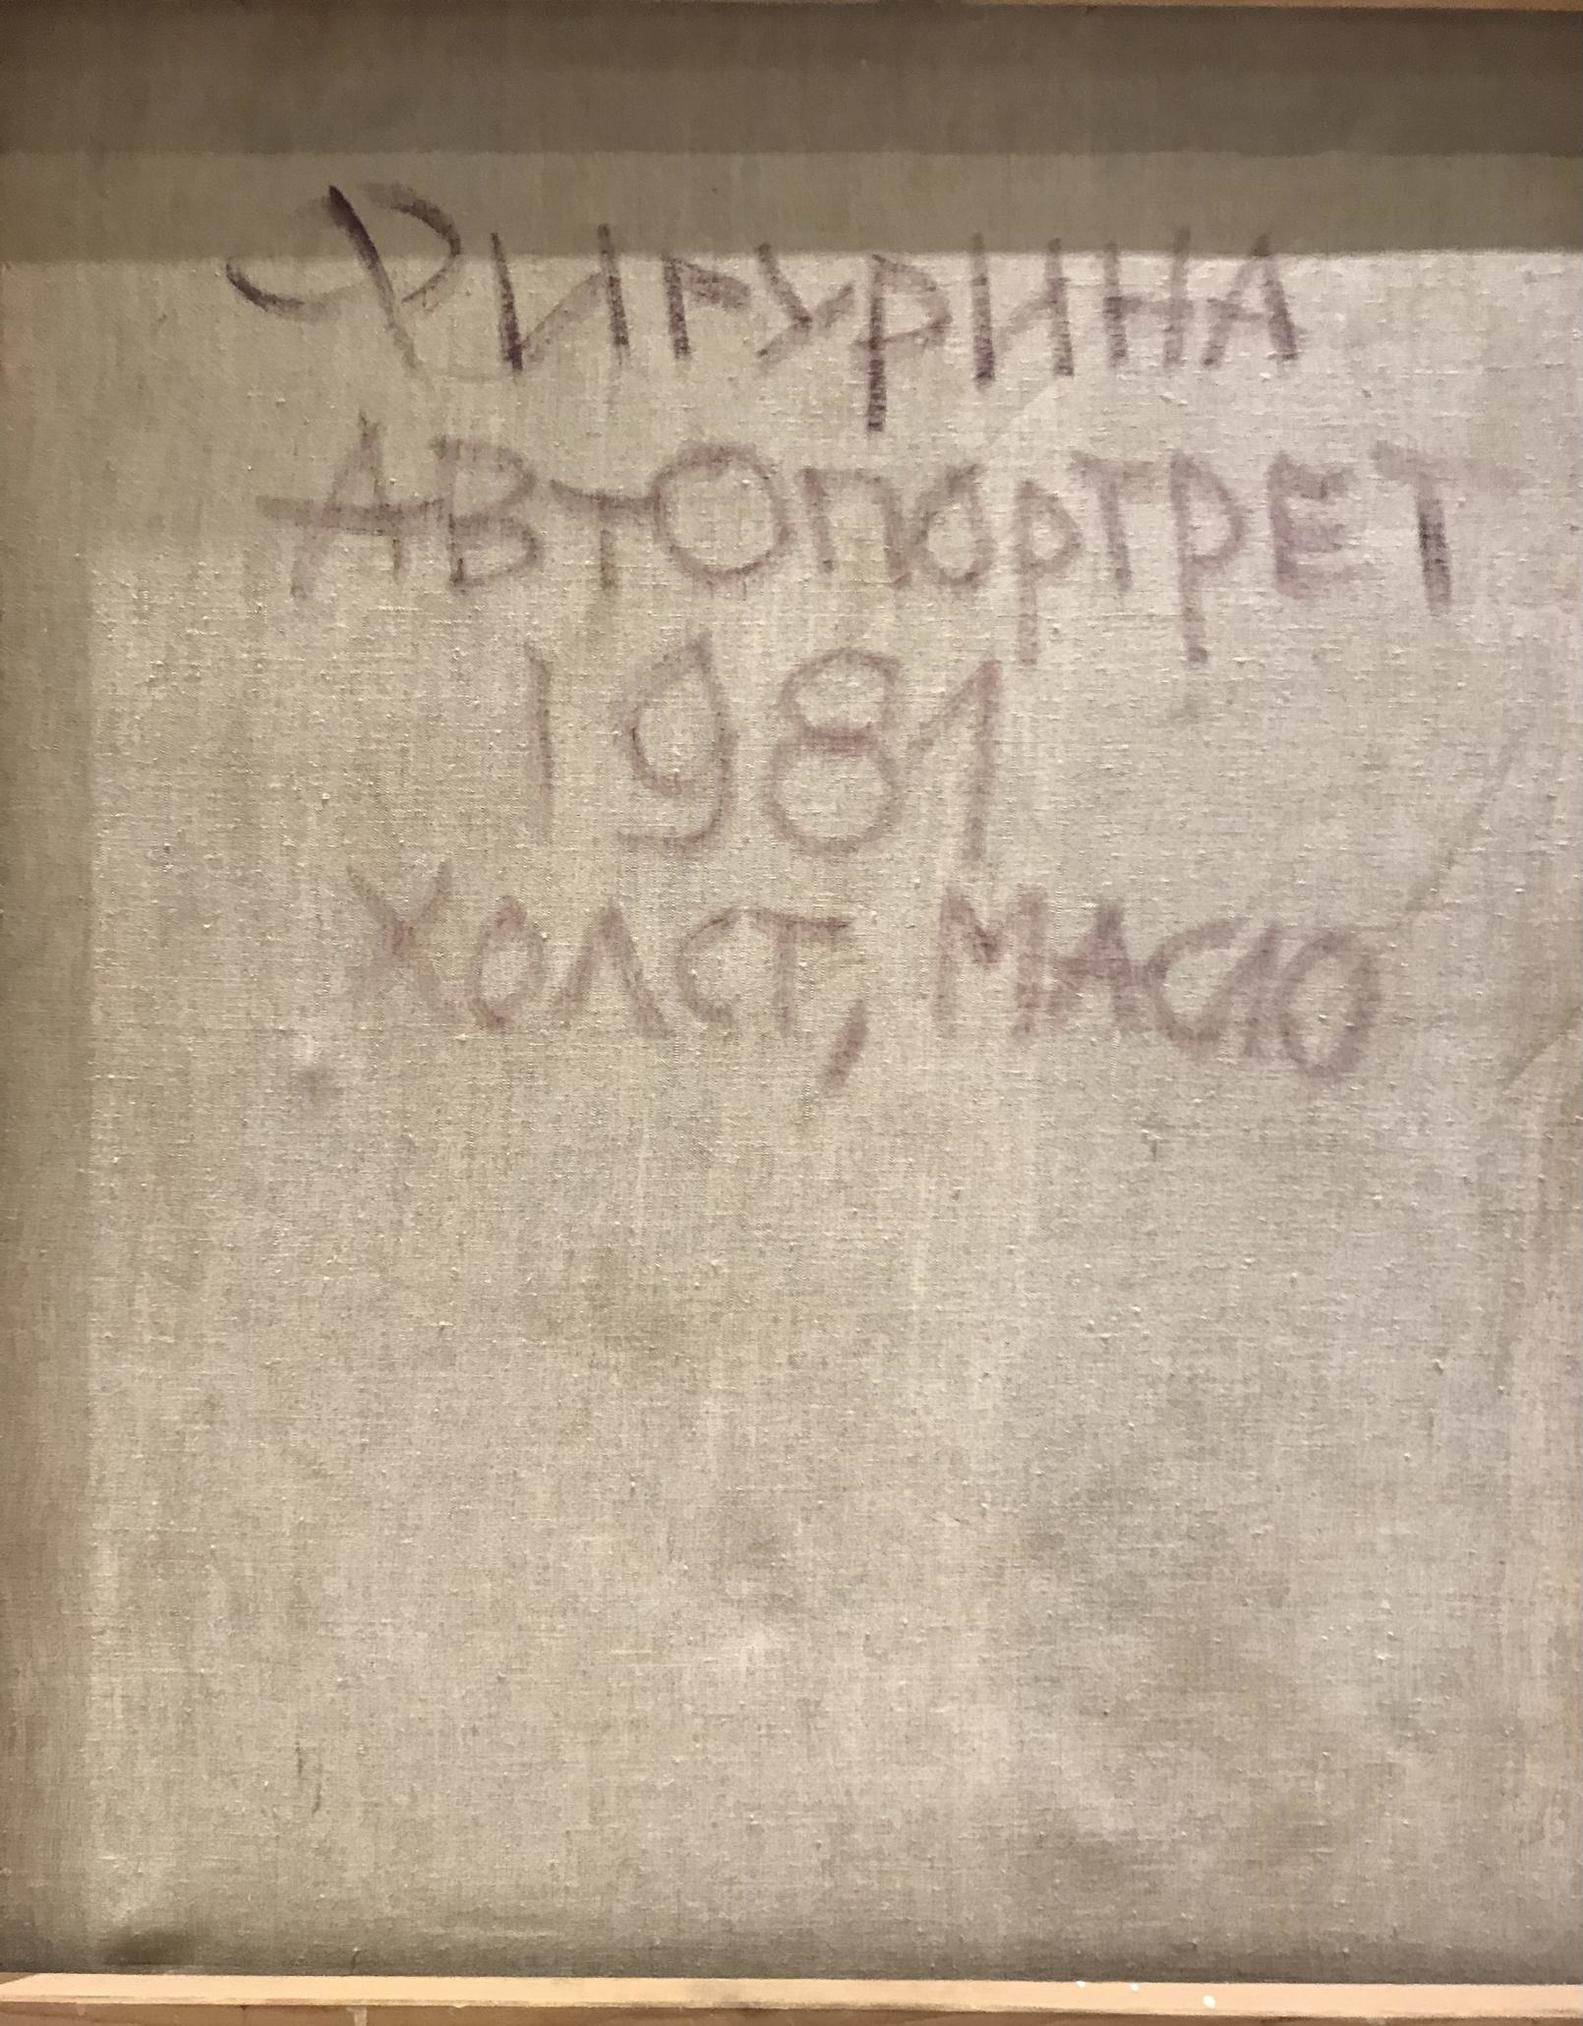 ФИГУРИНА
АВТОПОРТРЕТ
1981
ХОЛСТ, МАСЛО